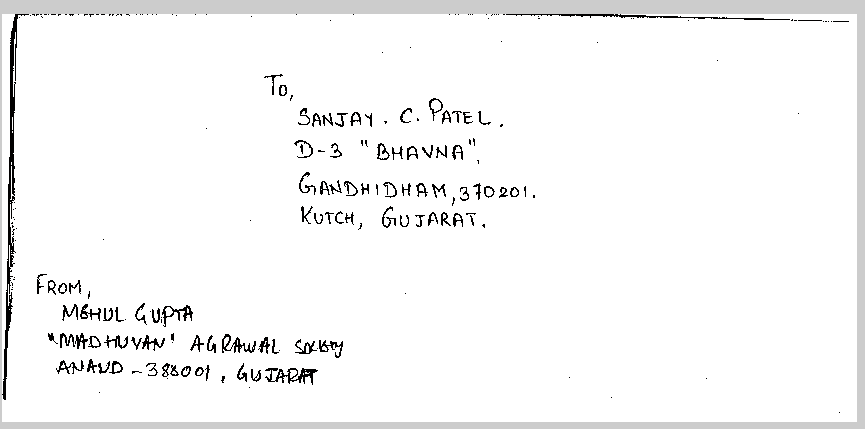 To,
SANJAY. C. PATEL.
D-3 "BHAVNA",
GANDHIDHAM, 370201.
KUTCH, GUJARAT.
FROM,
MEHUL GUPTA
"MADHUVAN" AGRAWAL SOCIETY
ANAND - 388001, GUJARAT